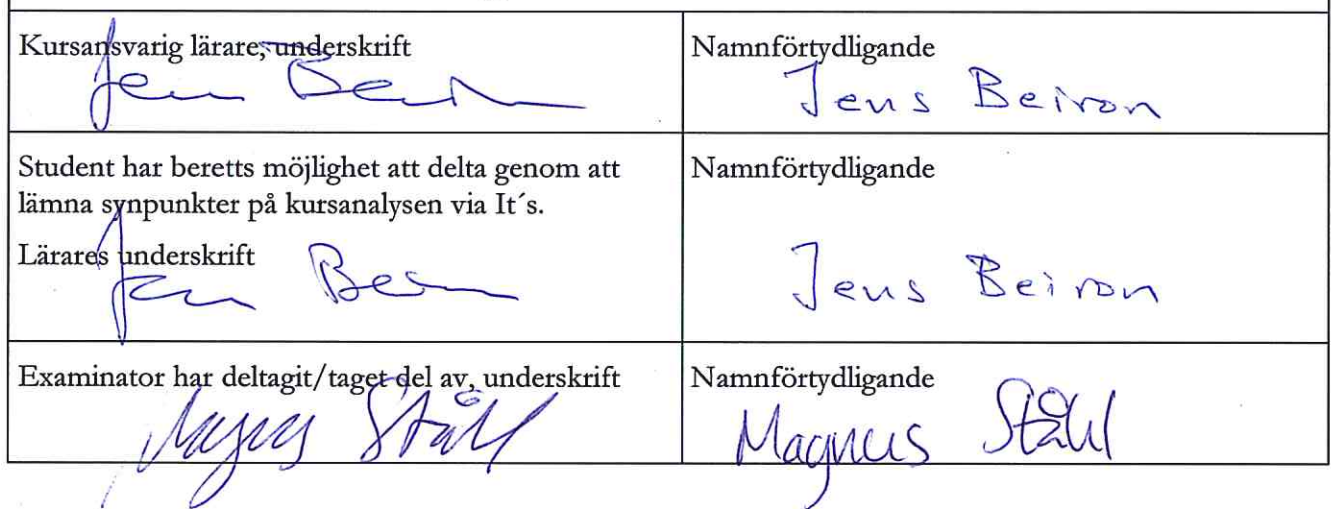 Kursansvarig lärare, underskrift
Jens Beiron
Namnförtydligande
Jens Beiron
Student har beretts möjlighet att delta genom att
lämna synpunkter på kursanalysen via It´s.
Lärares underskrift
Jens Beiron
Namnförtydligande
Jens Beiron
Examinator har deltagit/taget del av, underskrift
Magnus Ståhl
Namnförtydligande
Magnus Ståhl